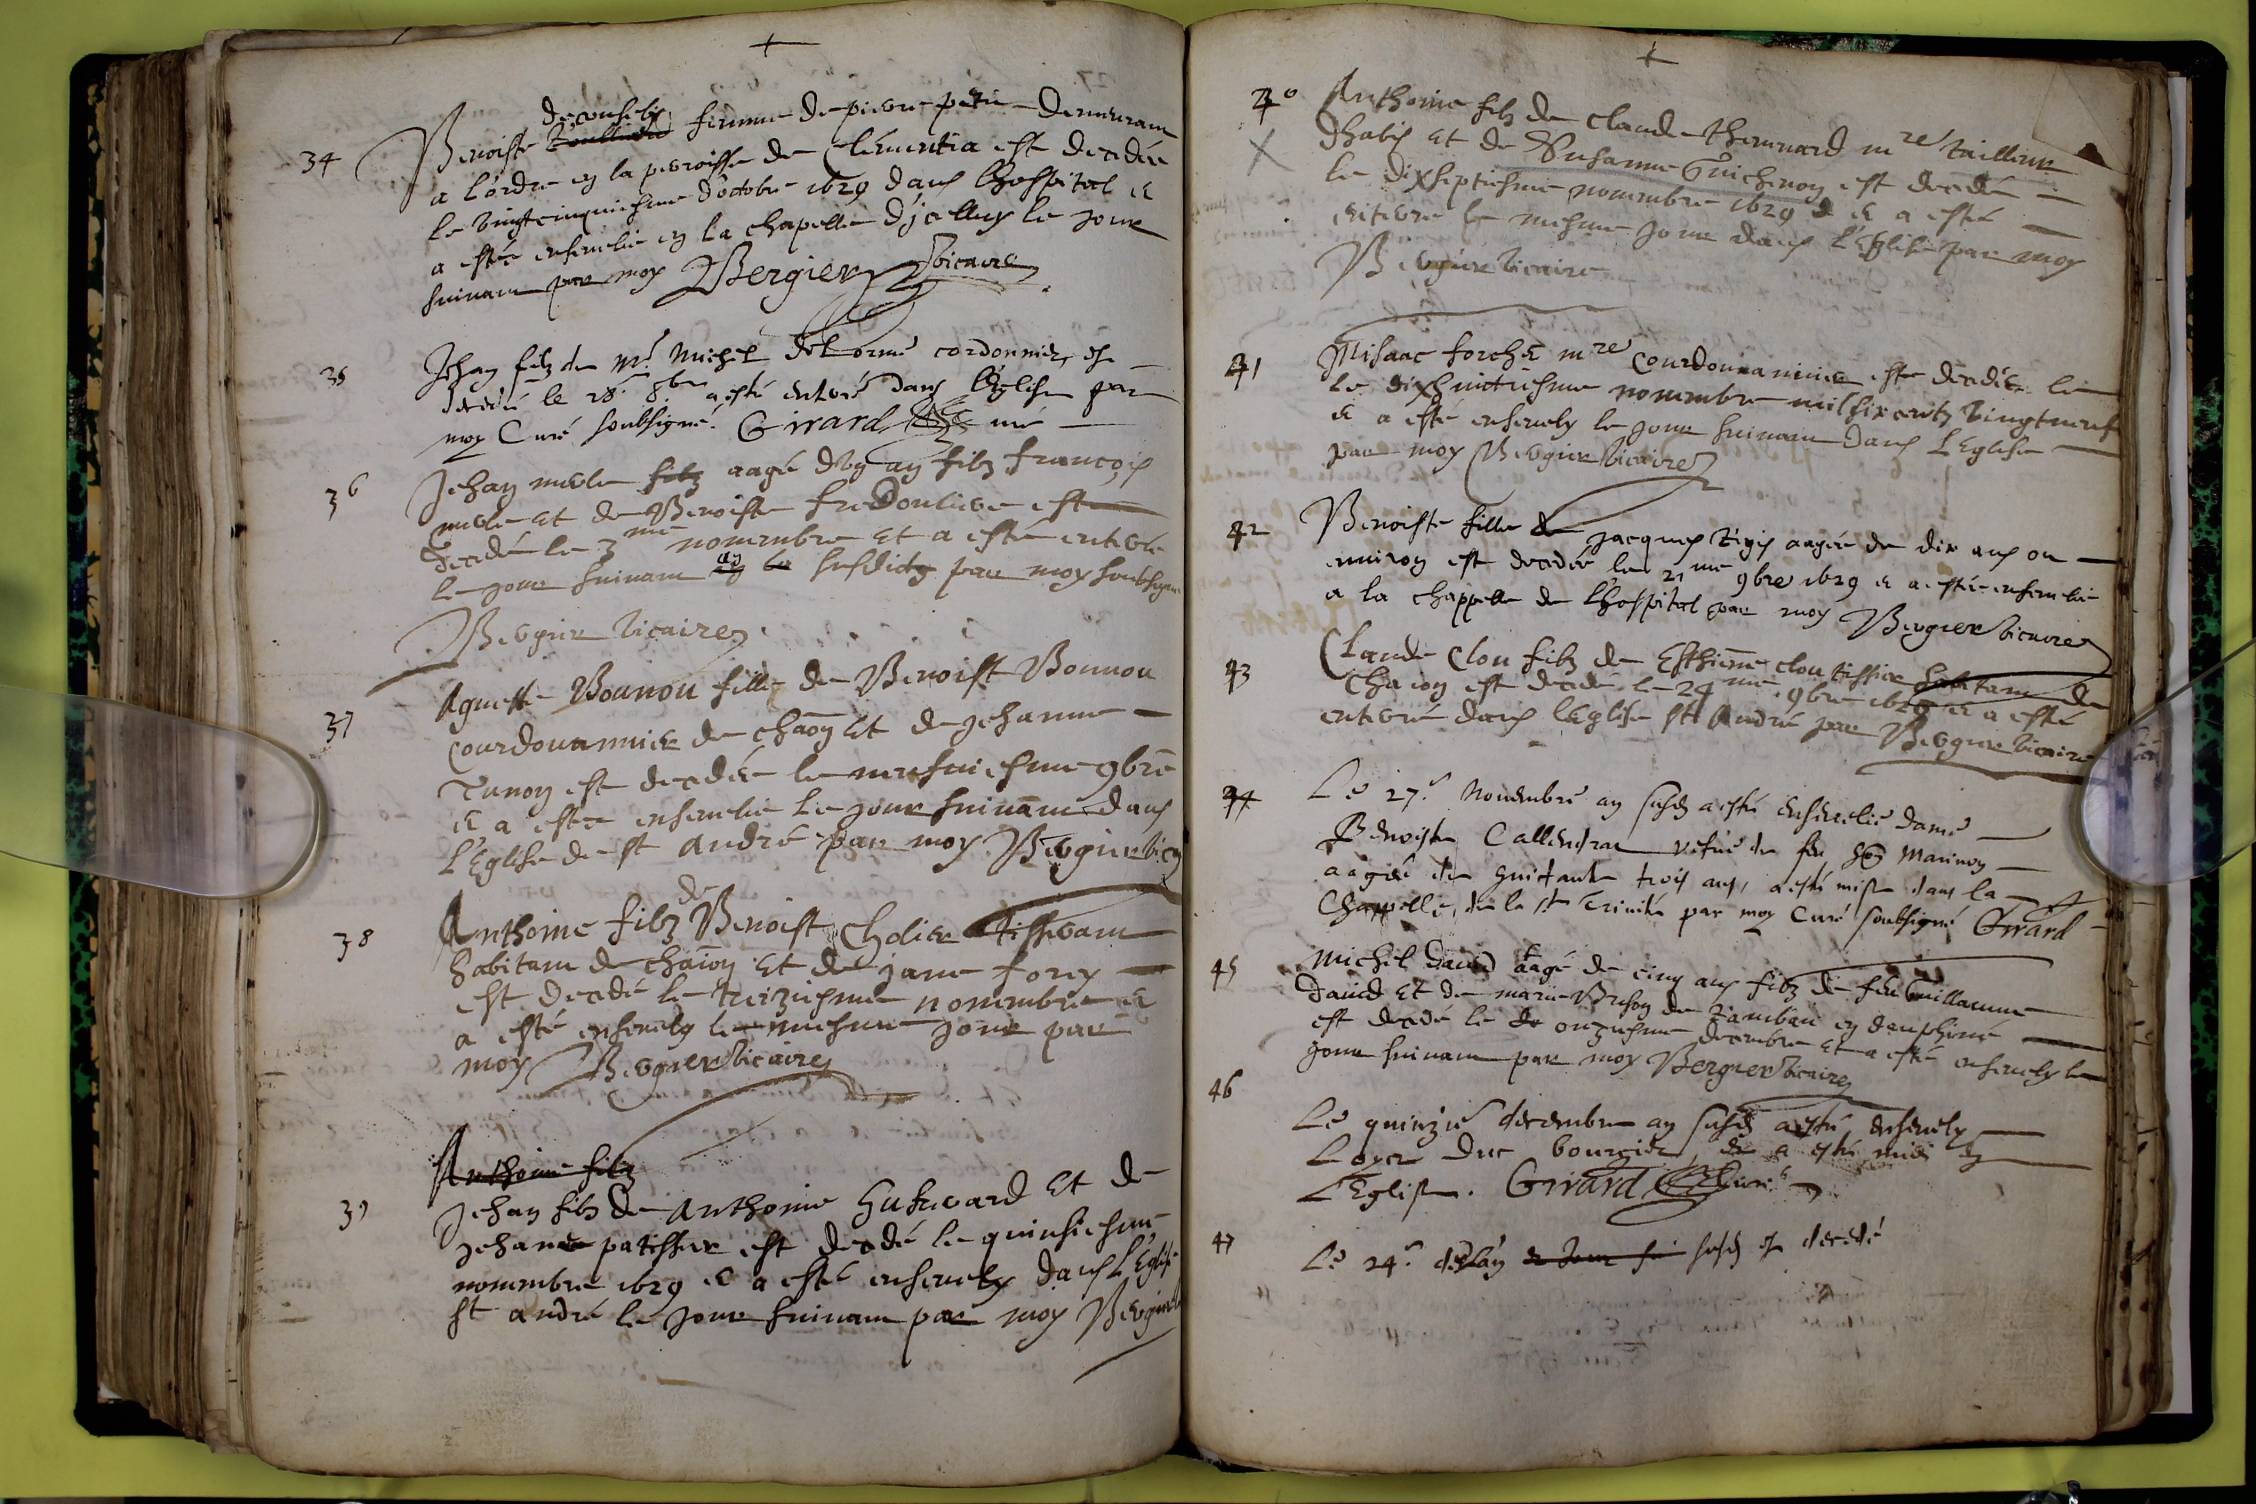 34
Benoiste femme de pierre petit demeurant
a l'ordre en la parroisse de Clementia est decedée
le vingtcinquiesme d'octobre 1629 dans lhospital et
a estée ensevelie en la chapelle d'icelluy le jour
suivant par moy Bergier vicaire
35
Jehan filz de Mre Michel delorme cordonnier, est
decedé le 28e 8bre a esté enterré dans l'Eglise par
moy Curé soubsigné. Girard curé
36
Jehan mesle filz aagé d'ung an filz françois
mesle et de Benoiste est
decedé le 3me novembre et a esté enterré
le jour suivant susdict par moy soubsigné
Bergier vicaire
37
Agnette Bounon fille de Benoist Bounou
courdouannier de chaōn et de jehanne
Tunon est decedée le neufviesme 9bre
et a estée ensevelie le jour suivant dans
L'Eglise de st André par moy Bergier vic
38
Anthoine filz de Benoist Cholier tisserant
habitant de chaōn et de jane forey
est decedé le treiziesme novembre et
a esté ensevely le mesme jour par
moy Bergier vicaire
Anthoine filz
39
Jehan filz de Anthoine et de
jehane patissier est decedé le quinsiesme
novembre 1629 et a esté ensevely dans L'Eglise
st andré le jour suivant par moy Bergier
40
Anthoine filz de Claude thevenard mre tailleur
dhabis et de Susanne Guichenon est decedé
le dixseptiesme novembre 1629 et a esté
enterré le mesme jour dans l'Eglise par moy
Bergier vicaire
41
Misaac forchet mre Courdouannier est decedé le
le dixhuictiesme novembre mil six centz vingtneuf
et a esté ensevely le jour suivant dans L'Eglise
par moy Bergier vicaire
42
Benoiste fille de jacques aagée de dix ans ou
environ est decedée le 21me 9bre 1629 et a estée ensevelie
a la chappelle de L'hospital par moy Bergier vicaire
43
Claude Clou filz de Esthienne clou tissier habitant de
chaōn est decedé le 24me 9bre 1629 et a esté
enterré dans l'Eglise st André par Bergier vicaire
44
Le 27e Novembre an susd. a esté ensevelie dame
Benoiste vefve de feu Marinon
aagée de huictante trois ans, a esté mise dans la
Chappelle de la ste Trinité par moy Curé soubsigné Girard
45
Michel david aagé de cinq ans filz de feu Guillaume
david et de marie Brison de en dauphiné
est decedé le onziesme decembre et a esté ensevely le
jour suivant par moy Bergier vicaire
46
Le quinzie decembre an susd. a esté ensevely
Loyer duc et a esté mis en
L'Eglise. Girard Curé
47
Le 24e susd. est decedé